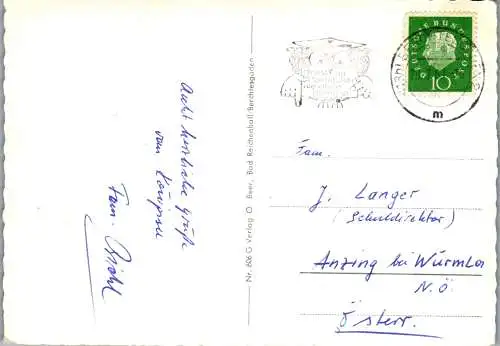 Recht herzliche Grüße
vom Königssee
Fam.
Nr. 606 G Verlag O. Beer, Bad Reichenhall/Berchtesgaden
DEUTSCHE BUNDESPOST
10
m
Fam.
J. Langer
(Schuldirektor)
Anzing bei Würmla
N.Ö.
Österr.